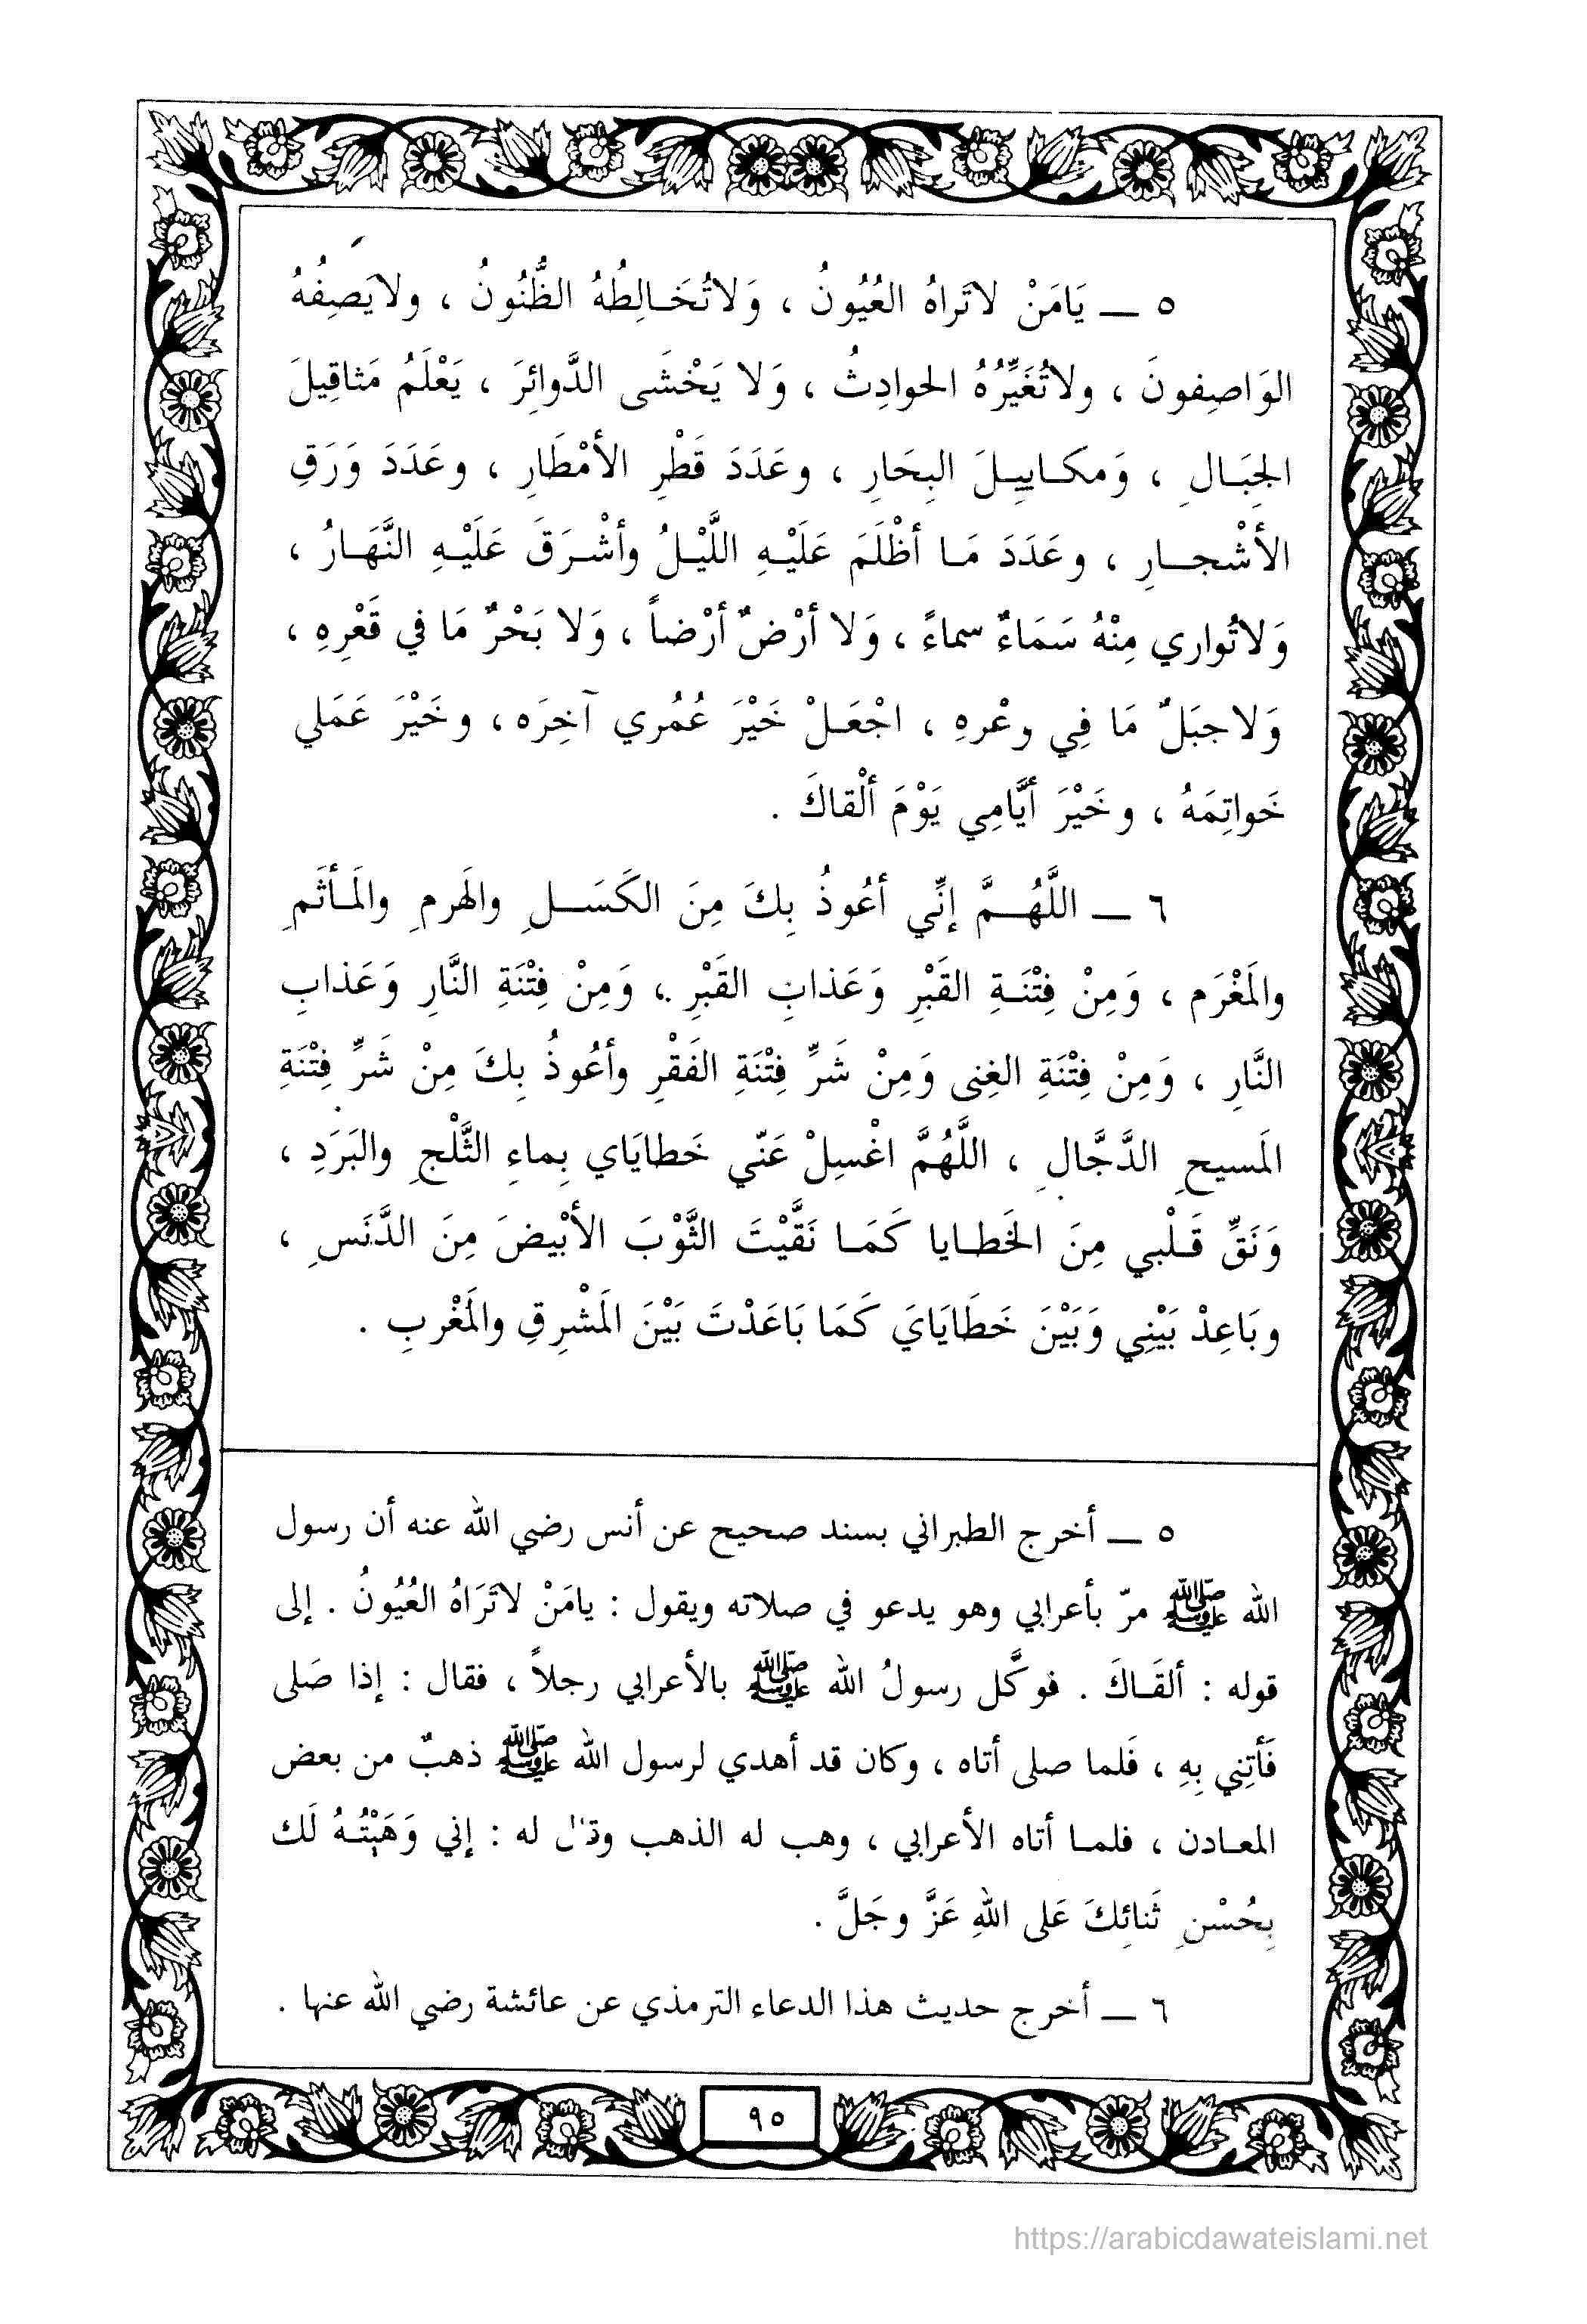 ٥ ــ يَامَنْ لاتَراهُ العُيُونُ ، وَلاتُخَالِطُهُ الظُّنُونُ ، ولايَصِفُهُ
الوَاصِفونَ ، ولاتُغَيِّرُهُ الحوادِثُ ، وَلا يَخْشَى الدَّوائِرَ ، يَعْلَمُ مَثاقِيلَ
الجِبَالِ ، وَمكاييِلَ البِحَارِ ، وعَدَدَ قَطْرِ الأمْطَارِ ، وعَدَدَ وَرَقِ
الأشْجارِ ، وعَدَدَ مَا أظْلَمَ عَلَيْهِ اللَّيْلُ وأشْرَقَ عَلَيْهِ النَّهَارُ ،
وَلاتُواري مِنْهُ سَمَاءٌ سماءً ، وَلا أرْضٌ أرْضاً ، وَلا بَحْرٌ مَا في قَعْرِهِ ،
وَلاجبَلٌ مَا فِي وعْرهِ ، اجْعَلْ خَيْرَ عُمُري آخِرَه ، وخَيْرَ عَمَلي
خَواتِمَهُ ، وخَيْرَ أيَّامِي يَوْمَ ألْقاكَ .
٦ ــ اللَّهُمَّ إنِّي أعُوذُ بِكَ مِنَ الكَسَلِ والهَرمِ والمَأثَمِ
والمَغْرَم ، وَمِنْ فِتْنَةِ القَبْرِ وَعَذابِ القَبْرِ ، وَمِنْ فِتْنَةِ النَّارِ وَعَذابِ
النَّارِ ، وَمِنْ فِتْنَةِ الغِنى وَمِنْ شَرِّ فِتْنَةِ الفَقْرِ وأعُوذُ بِكَ مِنْ شَرِّ فِتْنَةِ
المَسيحِ الدَّجَّالِ ، اللَّهُمَّ اغْسِلْ عَنّي خَطايَاي بِماءِ الثَّلْجِ والبَرَدِ ،
وَنَقِّ قَلْبي مِنَ الخَطايا كَمَا نَقَّيْتَ الثَّوْبَ الأبْيضَ مِنَ الدَّنَسِ ،
وبَاعِدْ بَيْنِي وَبَيْنَ خَطَايَايَ كَمَا بَاعَدْتَ بَيْنَ المَشْرِقِ والمَغْربِ .
٥ ــ أخرج الطبراني بسند صحيح عن أنس رضي الله عنه أن رسول
الله ﷺ مرّ بأعرابي وهو يدعو في صلاته ويقول : يامَنْ لاتَرَاهُ العُيُونُ . إلى
قوله : ألقَاكَ . فوكَّل رسولُ الله ﷺ بالأعرابي رجلاً ، فقال : إذا صَلى
فَأتِني بِهِ ، فَلما صلى أتاه ، وكان قد أهدي لرسول الله ﷺ ذهبٌ من بعض
المعادن ، فلما أتاه الأعرابي ، وهب له الذهب وقال له : إني وَهَبْتُهُ لَك
بِحُسْنِ ثَنائِكَ عَلى اللهِ عَزَّ وجَلَّ .
٦ ــ أخرج حديث هذا الدعاء الترمذي عن عائشة رضي الله عنها .
٩٥
https://arabicdawateislami.net